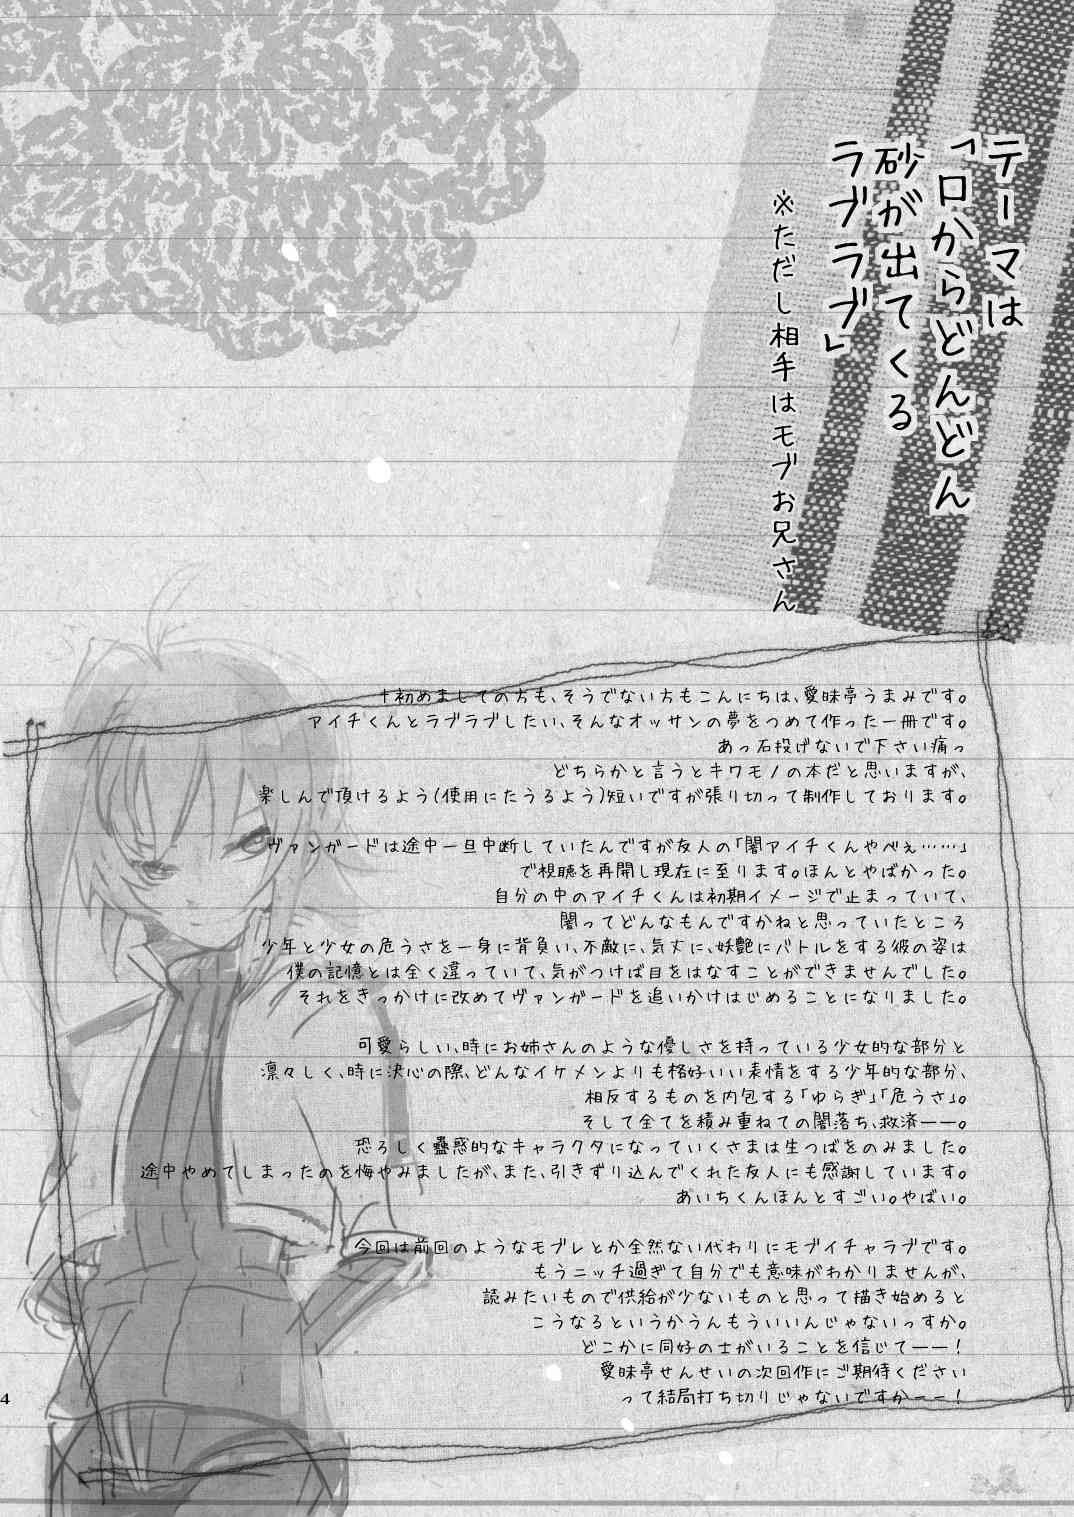 テーマは
「口からどんどん
砂が出てくる
ラブラブ」
※ただし相手はモブお兄さん
†初めましての方も、そうでない方もこんにちは、愛昧亭うまみです。
アイチくんとラブラブしたい、そんなオッサンの夢をつめて作った一冊です。
あっ石投げないで下さい痛っ
どちらかと言うとキワモノの本だと思いますが、
楽しんで頂けるよう(使用にたうるよう)短いですが張り切って制作しております。
ヴァンガードは途中一旦中断していたんですが友人の「闇アイチくんやべぇ……」
で視聴を再開し現在に至ります。ほんとやばかった。
自分の中のアイチくんは初期イメージで止まっていて、
闇ってどんなもんですかねと思っていたところ
少年と少女の危うさを一身に背負い、不敵に、気丈に、妖艶にバトルをする彼の姿は
僕の記憶とは全く違っていて、気がつけば目をはなすことができませんでした。
それをきっかけに改めてヴァンガードを追いかけはじめることになりました。
可愛らしい、時にお姉さんのような優しさを持っている少女的な部分と
凛々しく、時に決心の際、どんなイケメンよりも格好いい表情をする少年的な部分、
相反するものを内包する「ゆらぎ」「危うさ」。
そして全てを積み重ねての闇落ち、救済――。
恐ろしく蠱惑的なキャラクタになっていくさまは生つばをのみました。
途中やめてしまったのを悔やみましたが、また、引きずり込んでくれた友人にも感謝しています。
あいちくんほんとすごい。やばい。
今回は前回のようなモブレとか全然ない代わりにモブイチャラブです。
もうニッチ過ぎて自分でも意味がわかりませんが、
読みたいもので供給が少ないものと思って描き始めると
こうなるというかうんもういいんじゃないっすか。
どこかに同好の士がいることを信じて――！
愛昧亭せんせいの次回作にご期待ください
って結局打ち切りじゃないですかーー！
4